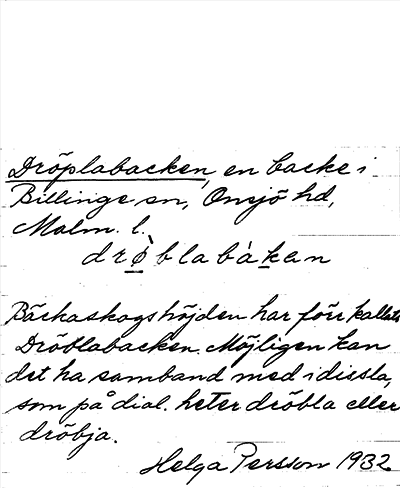 Dröplabacken, en backe i
Billinge sn, Onsjö hd,
Malm. l.
drø̀blabàkan
Bäckaskogshöjden har förr kallats
Dröblabacken. Möjligen kan
det ha samband med idissla,
som på dial. heter dröbla eller
dröbja.
Helga Persson 1932.